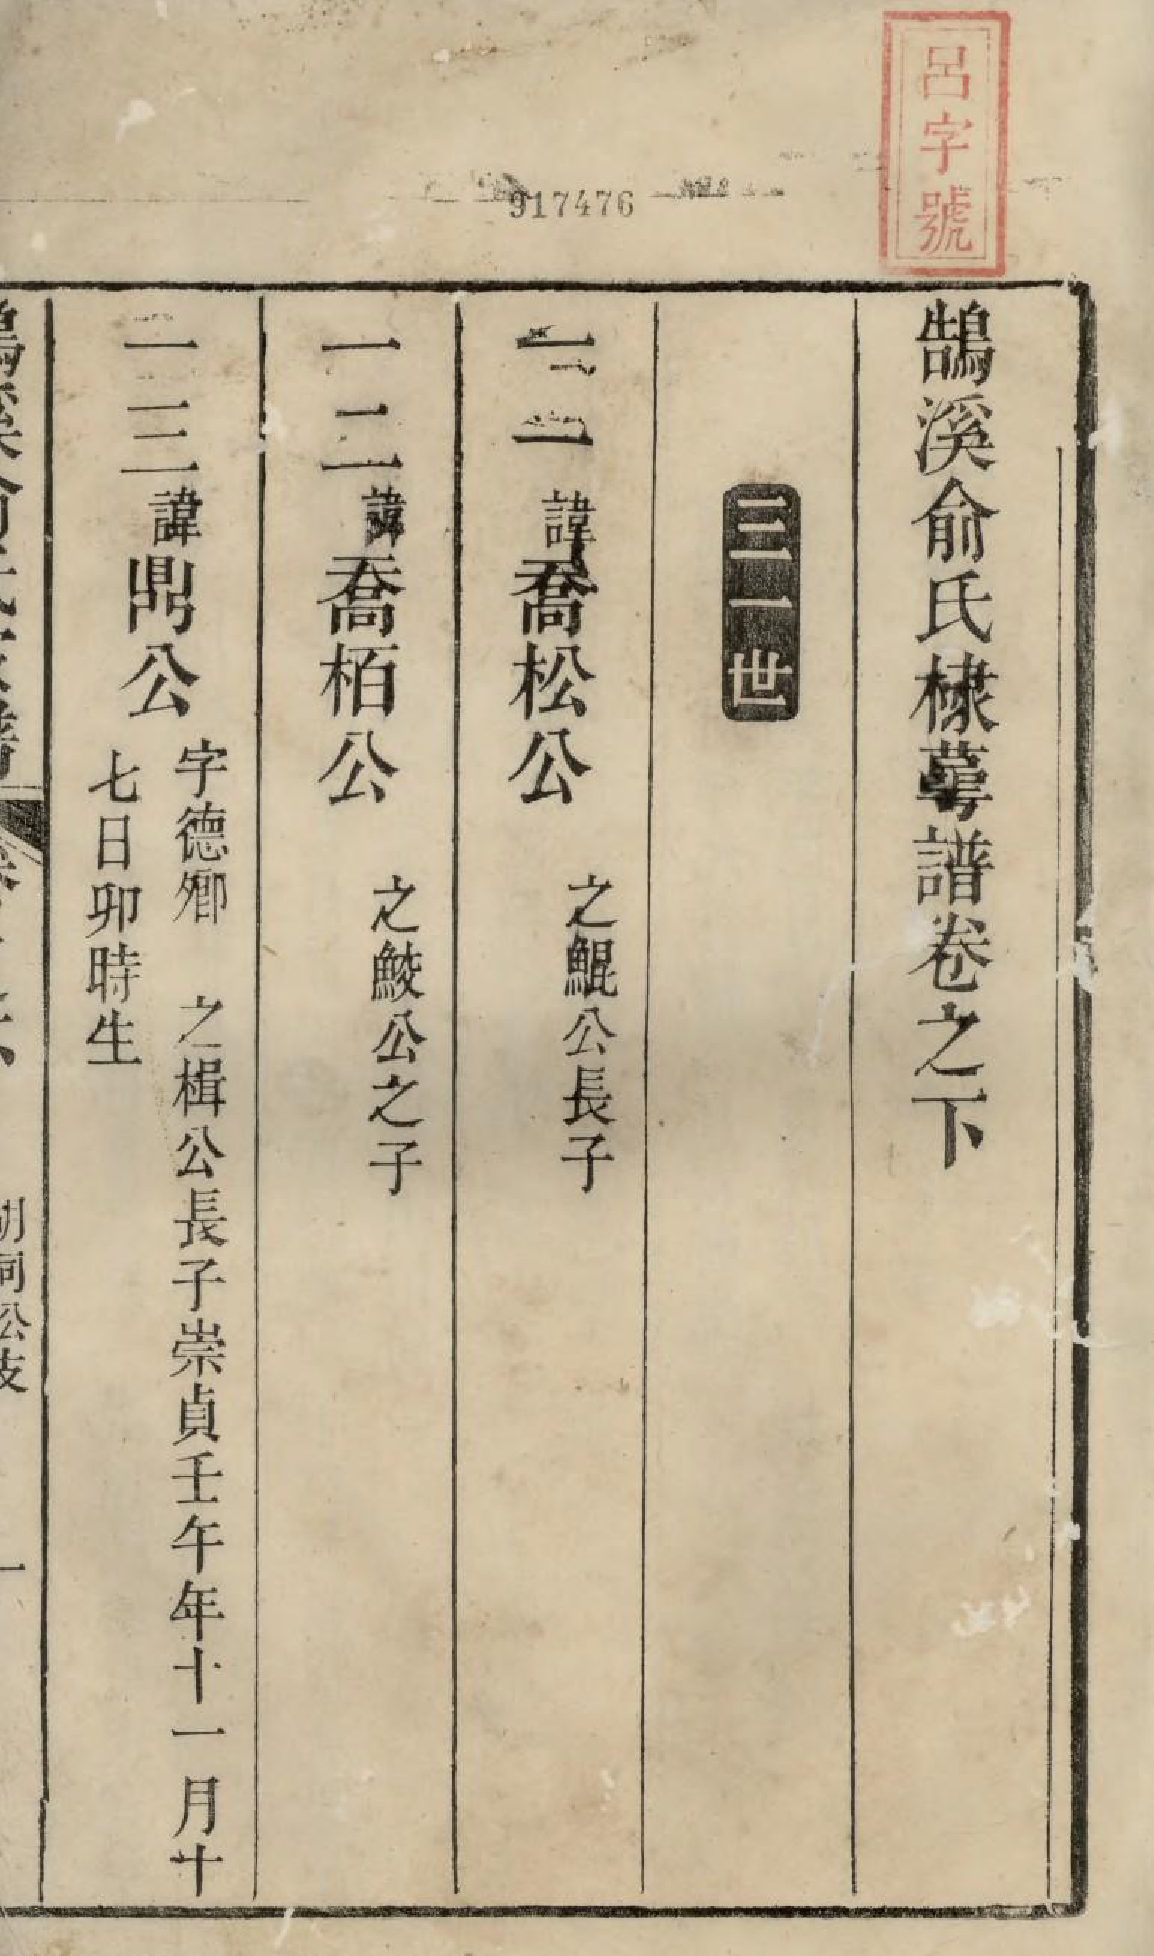 呂字號
917476
鵠溪俞氏棣萼譜卷之下
三一世
一一諱喬松公 之鯤公長子
一二諱喬栢公 之鮫公之子
一三諱鼎公 字德卿 之楫公長子崇貞壬午年十一月十
七日卯時生